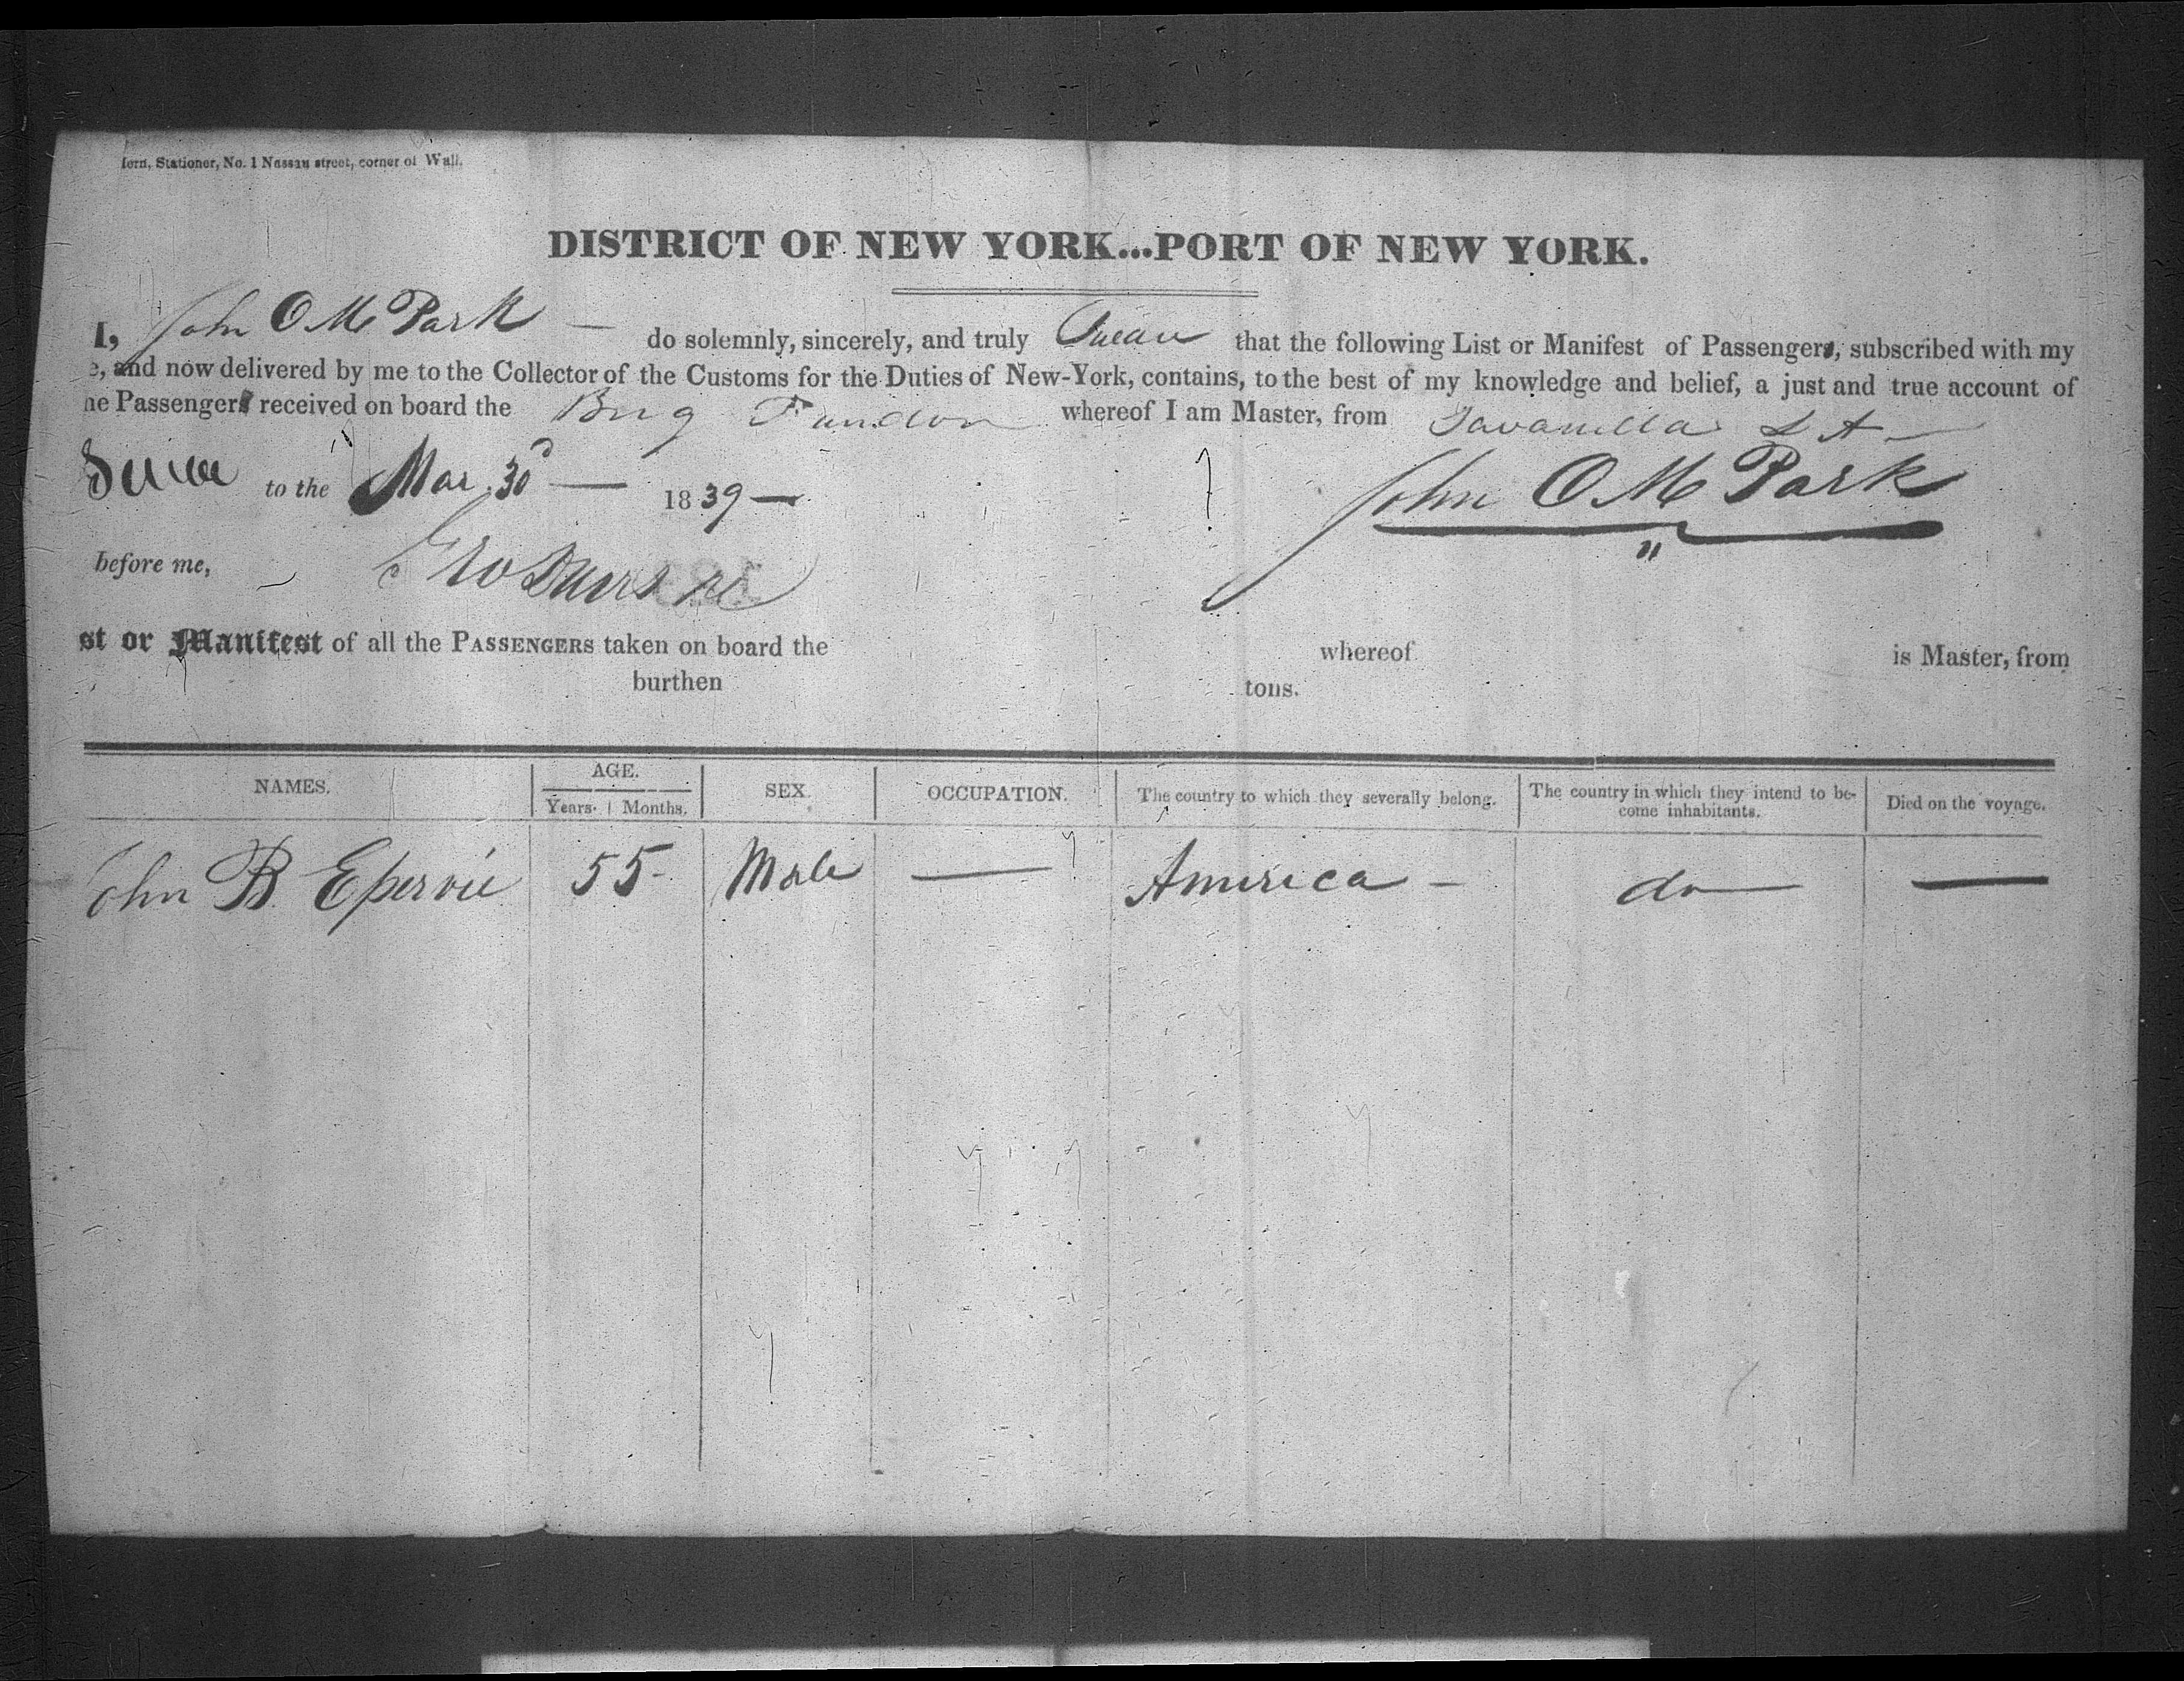 lorn, Stationer, No. 1 Nassau street, corner of Wall.
DISTRICT OF NEW YORK...PORT OF NEW YORK.
I, John O M Park — do solemnly, sincerely, and truly Swear that the following List or Manifest of Passengers, subscribed with my
e, and now delivered by me to the Collector of the Customs for the Duties of New-York, contains, to the best of my knowledge and belief, a just and true account of
he Passengers received on board the Brig whereof I am Master, from Savanilla S A —
to the Mar. 30 — 1839 —
John O M Park
before me,
st or Manifest of all the PASSENGERS taken on board the whereof is Master, from
burthen tons.
NAMES. AGE. Years. Months. SEX. OCCUPATION. The country to which they severally belong. The country in which they intend to become inhabitants. Died on the voyage.
John B Epervie 55 - Male — America - do — —